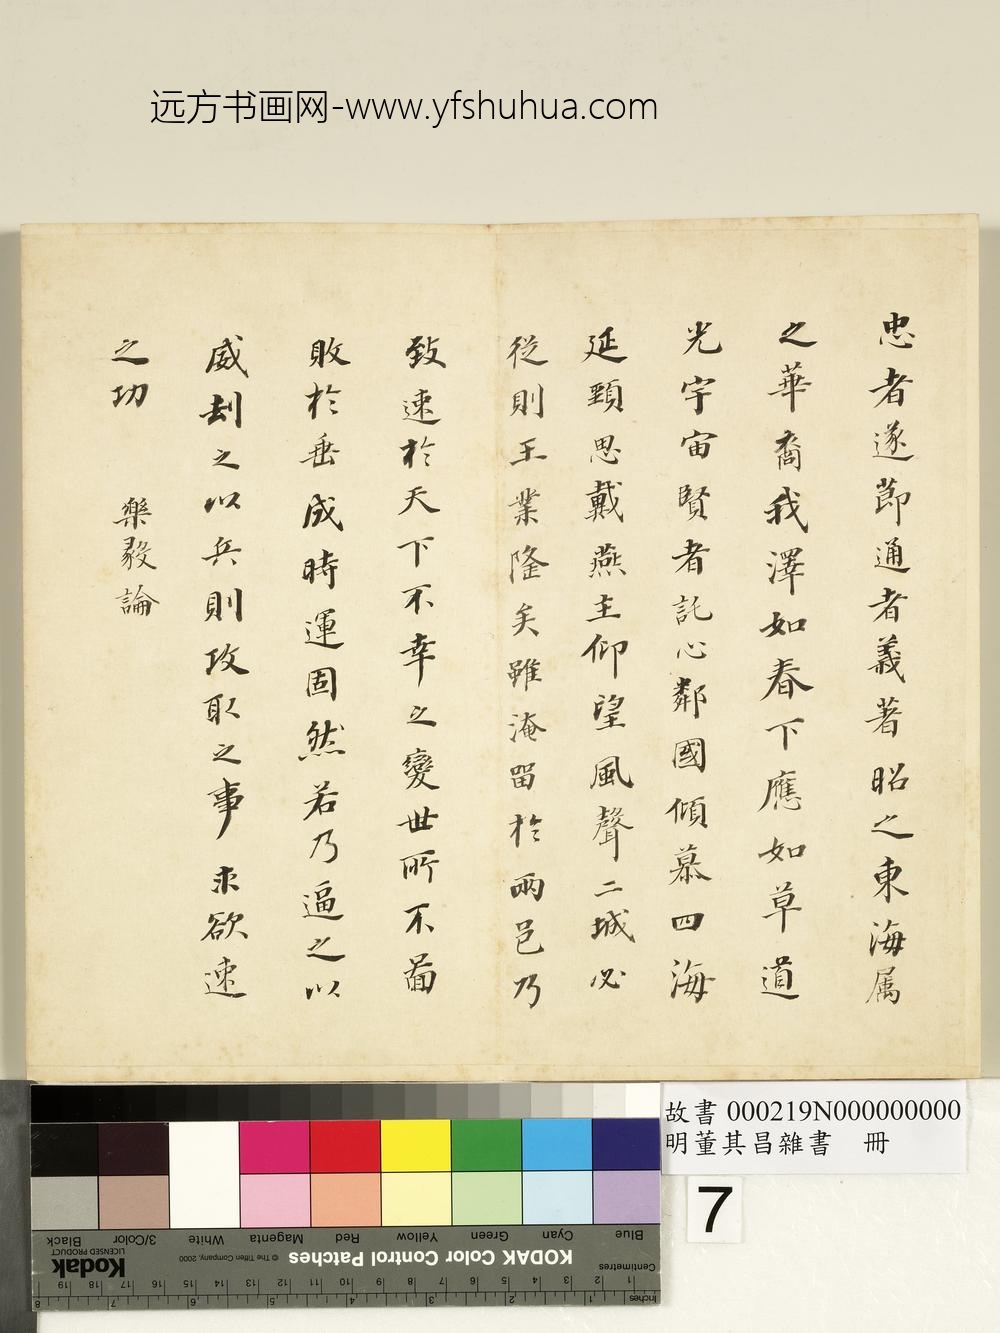 远方书画网-www.yfshuhua.com
忠者遂莭通者義著昭之東海属
之華裔我澤如春下應如草道
光宇宙賢者託心鄰國傾慕四海
延頸思戴燕主仰望風聲二城必
從則王業隆矣雖淹留於兩邑乃
致速於天下不幸之變世所不啚
敗於垂成時運固然若乃逼之以
威刼之以兵則攻取之事求欲速
之功
樂毅論
故書 000219N000000000
明董其昌雜書 冊
7
Blue Cyan Green Yellow Red Magenta White 3/Color Black
KODAK Color Control Patches
© The Tiffen Company, 2000
Kodak
LICENSED PRODUCT
Centimetres
1 2 3 4 5 6 7 8 9 10 11 12 13 14 15 16 17 18 19
Inches
1 2 3 4 5 6 7 8